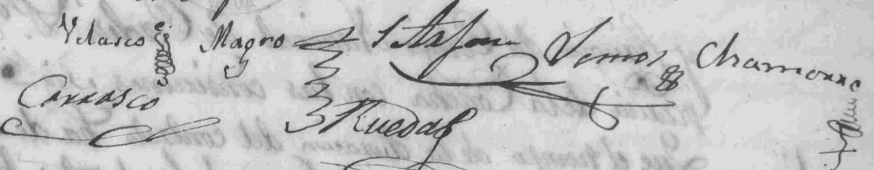 Velasco Magro Lemos Chamorro
Carrasco Ruedas